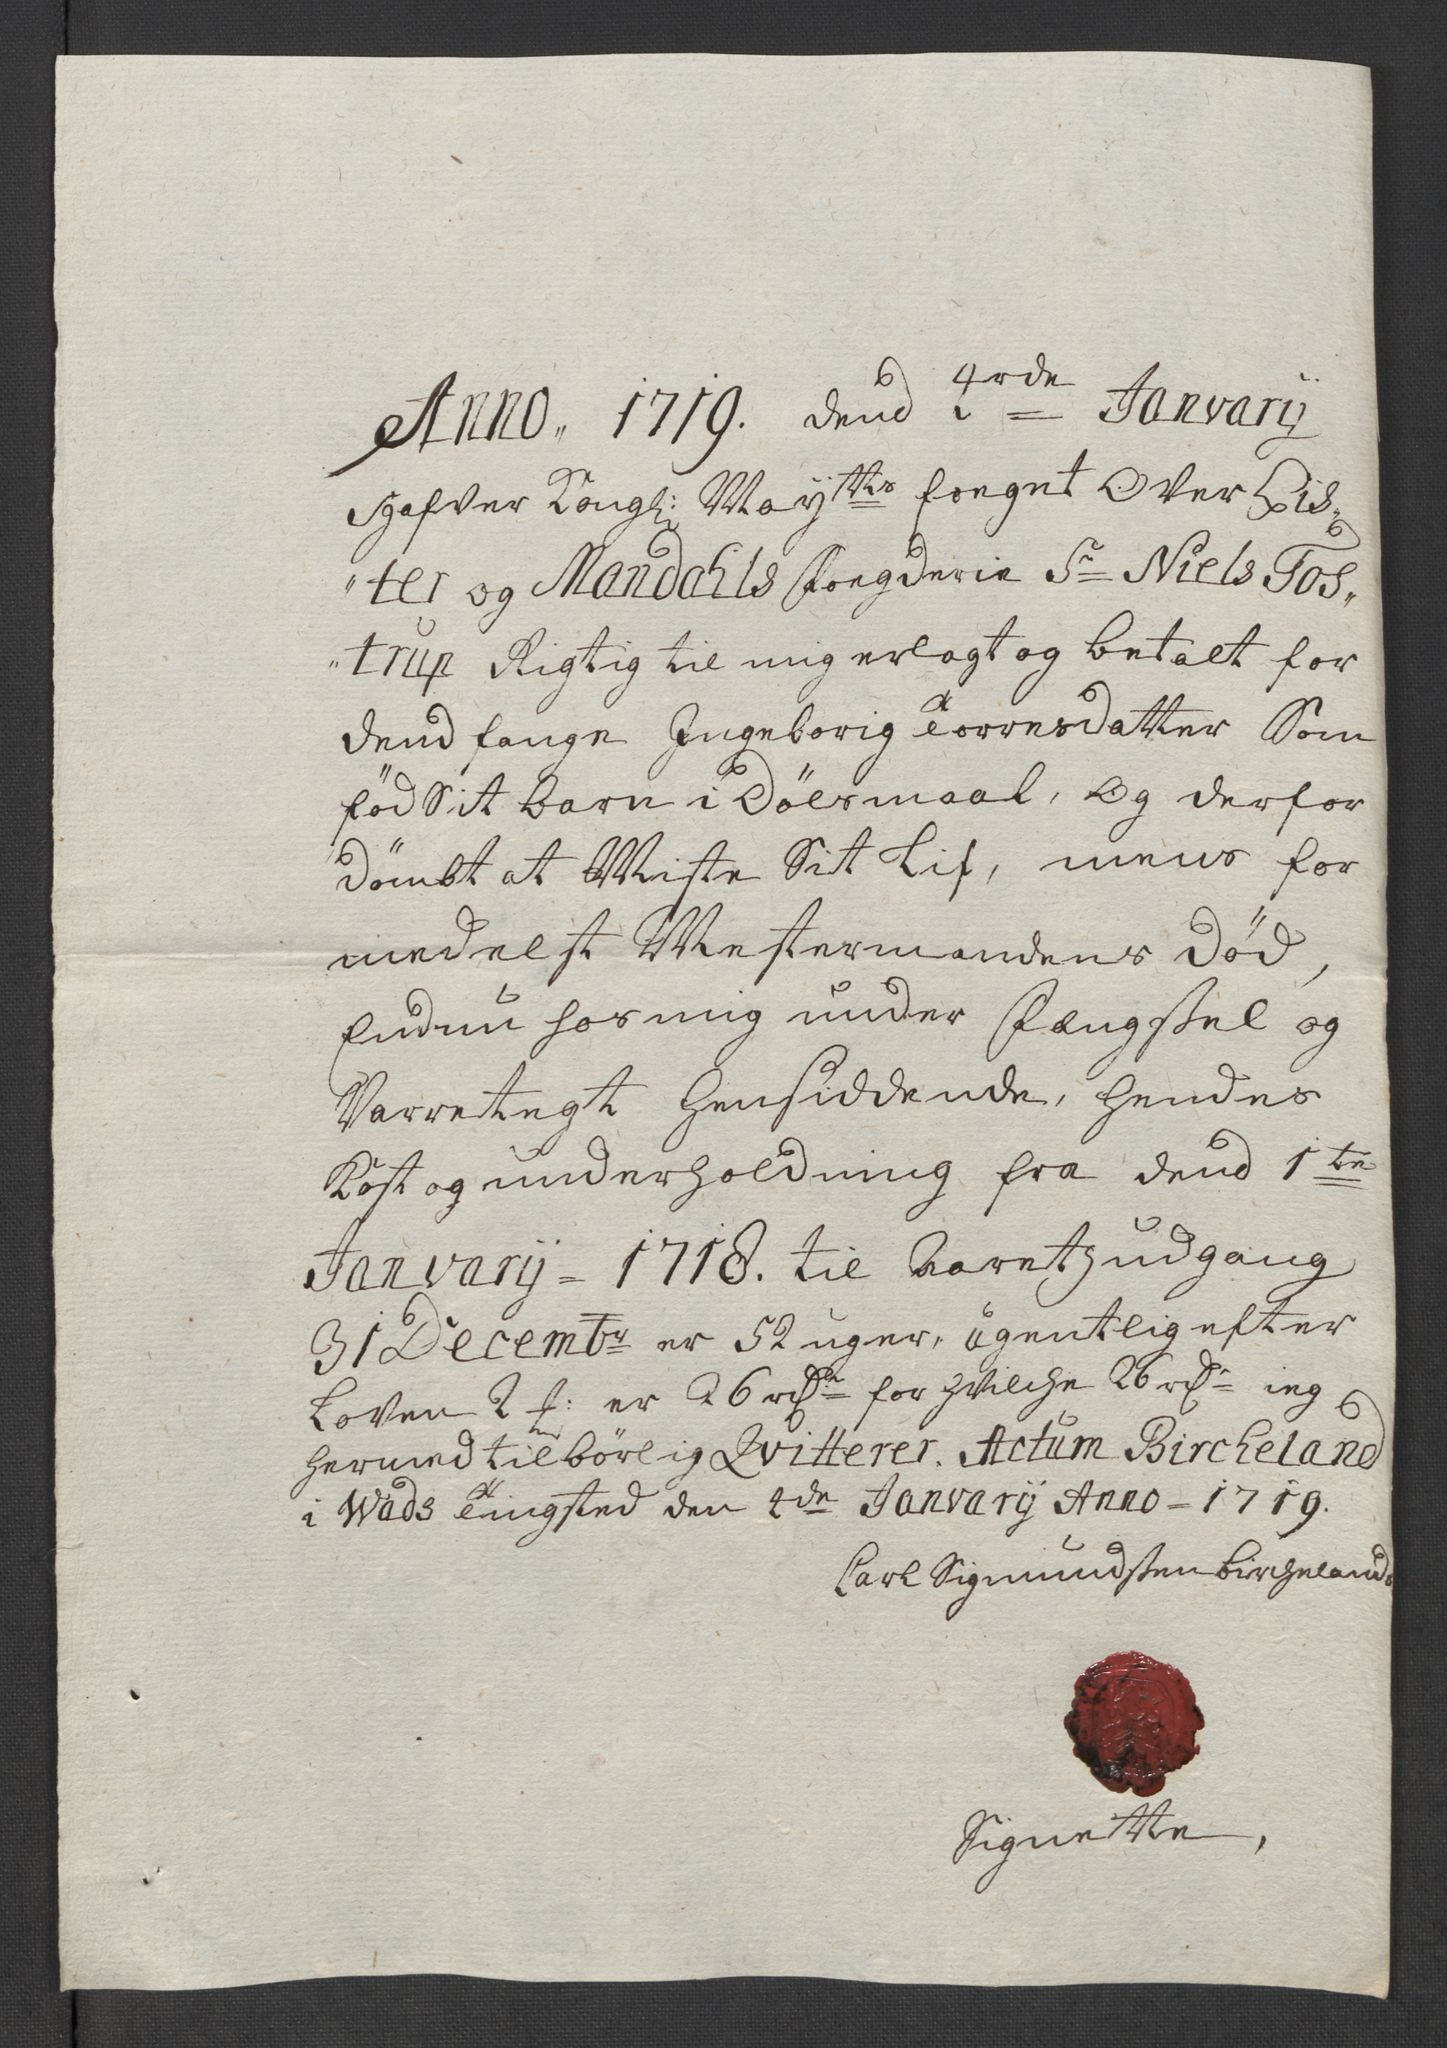 Anno„ 1719. dend 4rde Janvarij
hafver Kongl: May:tts foegut Over Lis„
„ter og Mandahls foegderie Sr Niels Tos„
„trup Rigtig til mig erlagt og betalt for
dend fange Ingeborig Torresdatter Som
fød Sit barn i Dølsmaal, Og derfor
dømbt at Miste Sit Lif, mens for
medelst Mestermandens død,
Endnu hos mig under Fængssel og
Varretegt hensiddende, hendes
Kost og underholdning fra dend 1te
Janvarij = 1718. til Aaretz udgang
31 Decembr er 52 uger, ugentlig efter
Loven 2 f: er 26 rdr for hvilche 26 rdr ieg
hermed tilbørlig Qvitterer. Actum Bircheland
i Wads Tingsted den 4de Janvarij Anno = 1719.
Carl Sigmundssen Bircheland
Signette,